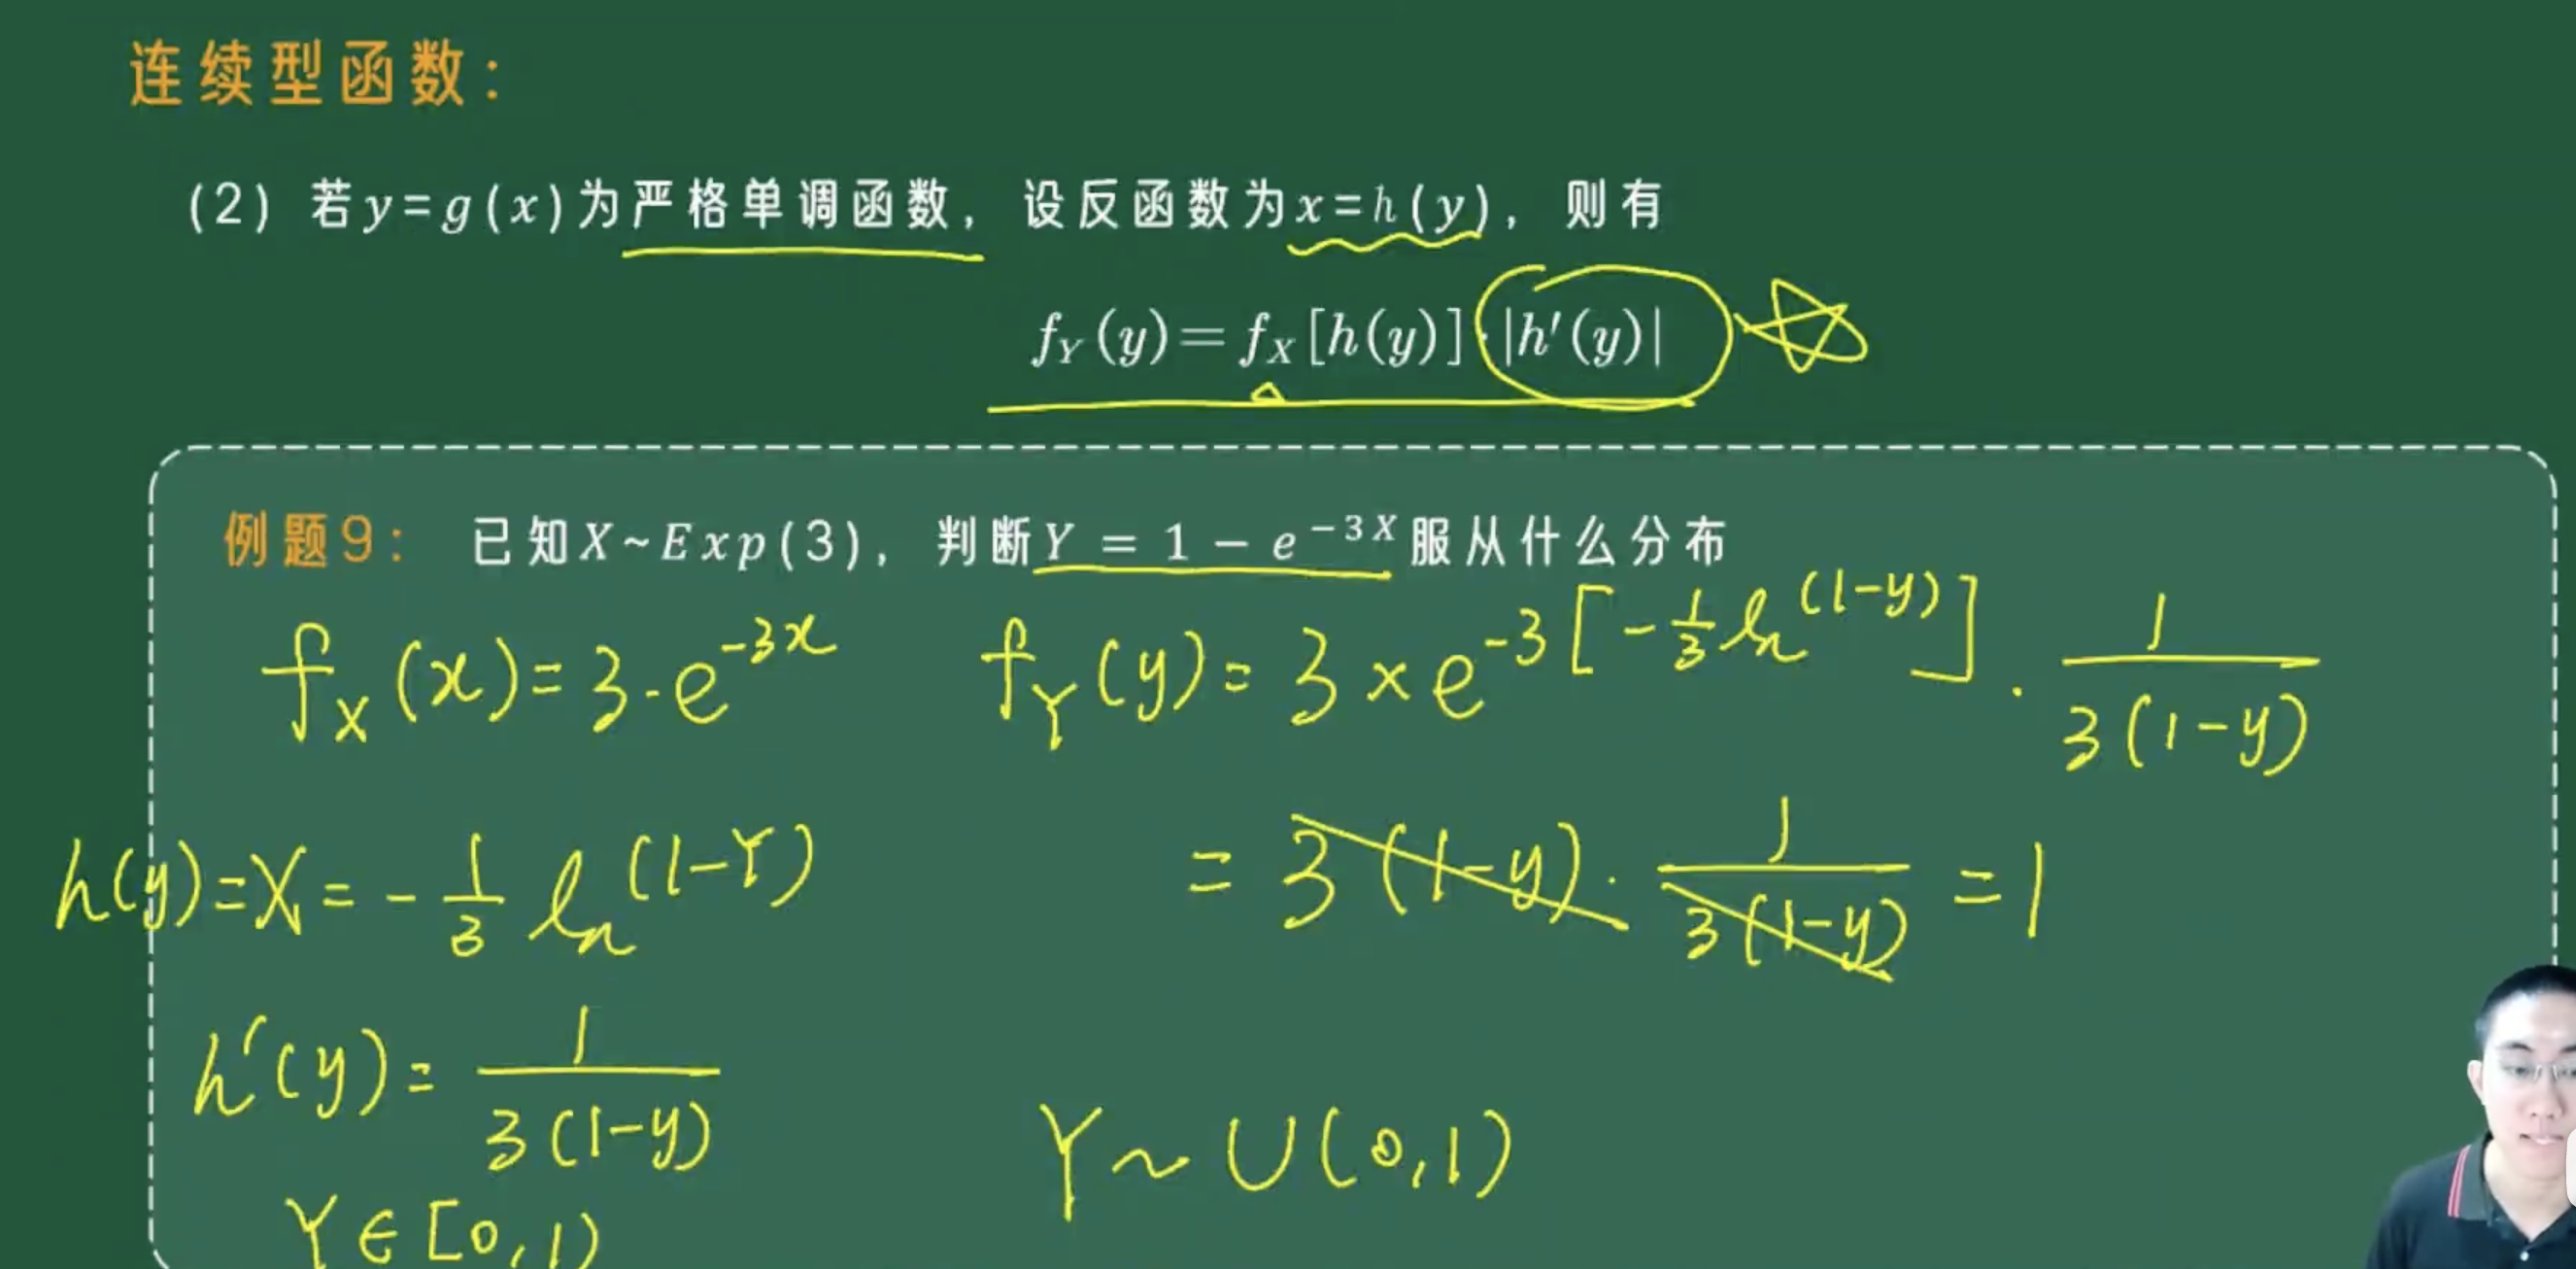 连续型函数：
(2) 若y=g(x)为严格单调函数，设反函数为x=h(y)，则有
f_Y(y)=f_X[h(y)]·|h'(y)|
例题9： 已知X~Exp(3)，判断Y = 1 − e^{−3X}服从什么分布
f_X(x)=3·e^{-3x}
f_Y(y)=3×e^{-3[-\frac{1}{3}ln(1-y)]}·\frac{1}{3(1-y)}
=3(1-y)·\frac{1}{3(1-y)}=1
h(y)=X=-\frac{1}{3}ln(1-Y)
h'(y)=\frac{1}{3(1-y)}
Y∈[0,1)
Y~U(0,1)